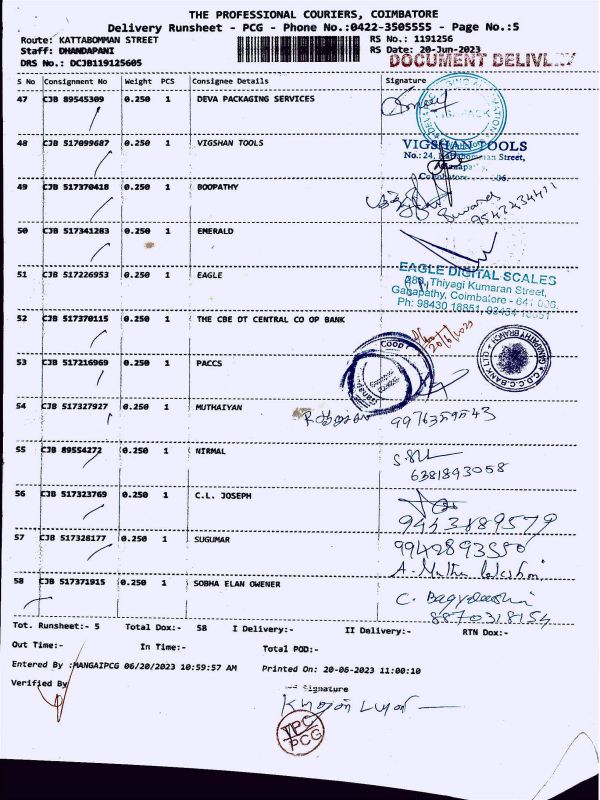 THE PROFESSIONAL COURIERS, COIMBATORE
Delivery Runsheet - PCG - Phone No.:0422-3505555 - Page No.:5
Route: KATTABOMMAN STREET RS No.: 1191256
Staff: DHANDAPANI RS Date: 20-Jun-2023
DRS No.: DCJB119125605 DOCUMENT DELIVERY
S No Consignment No Weight PCS Consignee Details Signature
47 CJB 89545309 0.250 1 DEVA PACKAGING SERVICES
48 CJB 517099687 0.250 1 VIGSHAN TOOLS VIGSHAN TOOLS
No.: 24, Kattabomman Street,
49 CJB 517370418 0.250 1 BOOPATHY
50 CJB 517341283 0.250 1 EMERALD
51 CJB 517226953 0.250 1 EAGLE EAGLE DIGITAL SCALES
280, Thiyagi Kumaran Street,
Ganapathy, Coimbatore - 641 006.
Ph: 98430 18851,
52 CJB 517370115 0.250 1 THE CBE DT CENTRAL CO OP BANK 20/6/2023
53 CJB 517216969 0.250 1 PACCS
54 CJB 517327927 0.250 1 MUTHAIYAN 9976359543
55 CJB 89554272 0.250 1 NIRMAL
6381893058
56 CJB 517323769 0.250 1 C.L. JOSEPH
9443889579
57 CJB 517328177 0.250 1 SUGUMAR 9942893550
58 CJB 517371915 0.250 1 SOBHA ELAN OWENER
8870318154
Tot. Runsheet:- 5 Total Dox:- 58 I Delivery:- II Delivery:- RTN Dox:-
Out Time:- In Time:- Total POD:-
Entered By :MANGAIPCG 06/20/2023 10:59:57 AM Printed On: 20-06-2023 11:00:10
Verified By Signature
TPC
PCG